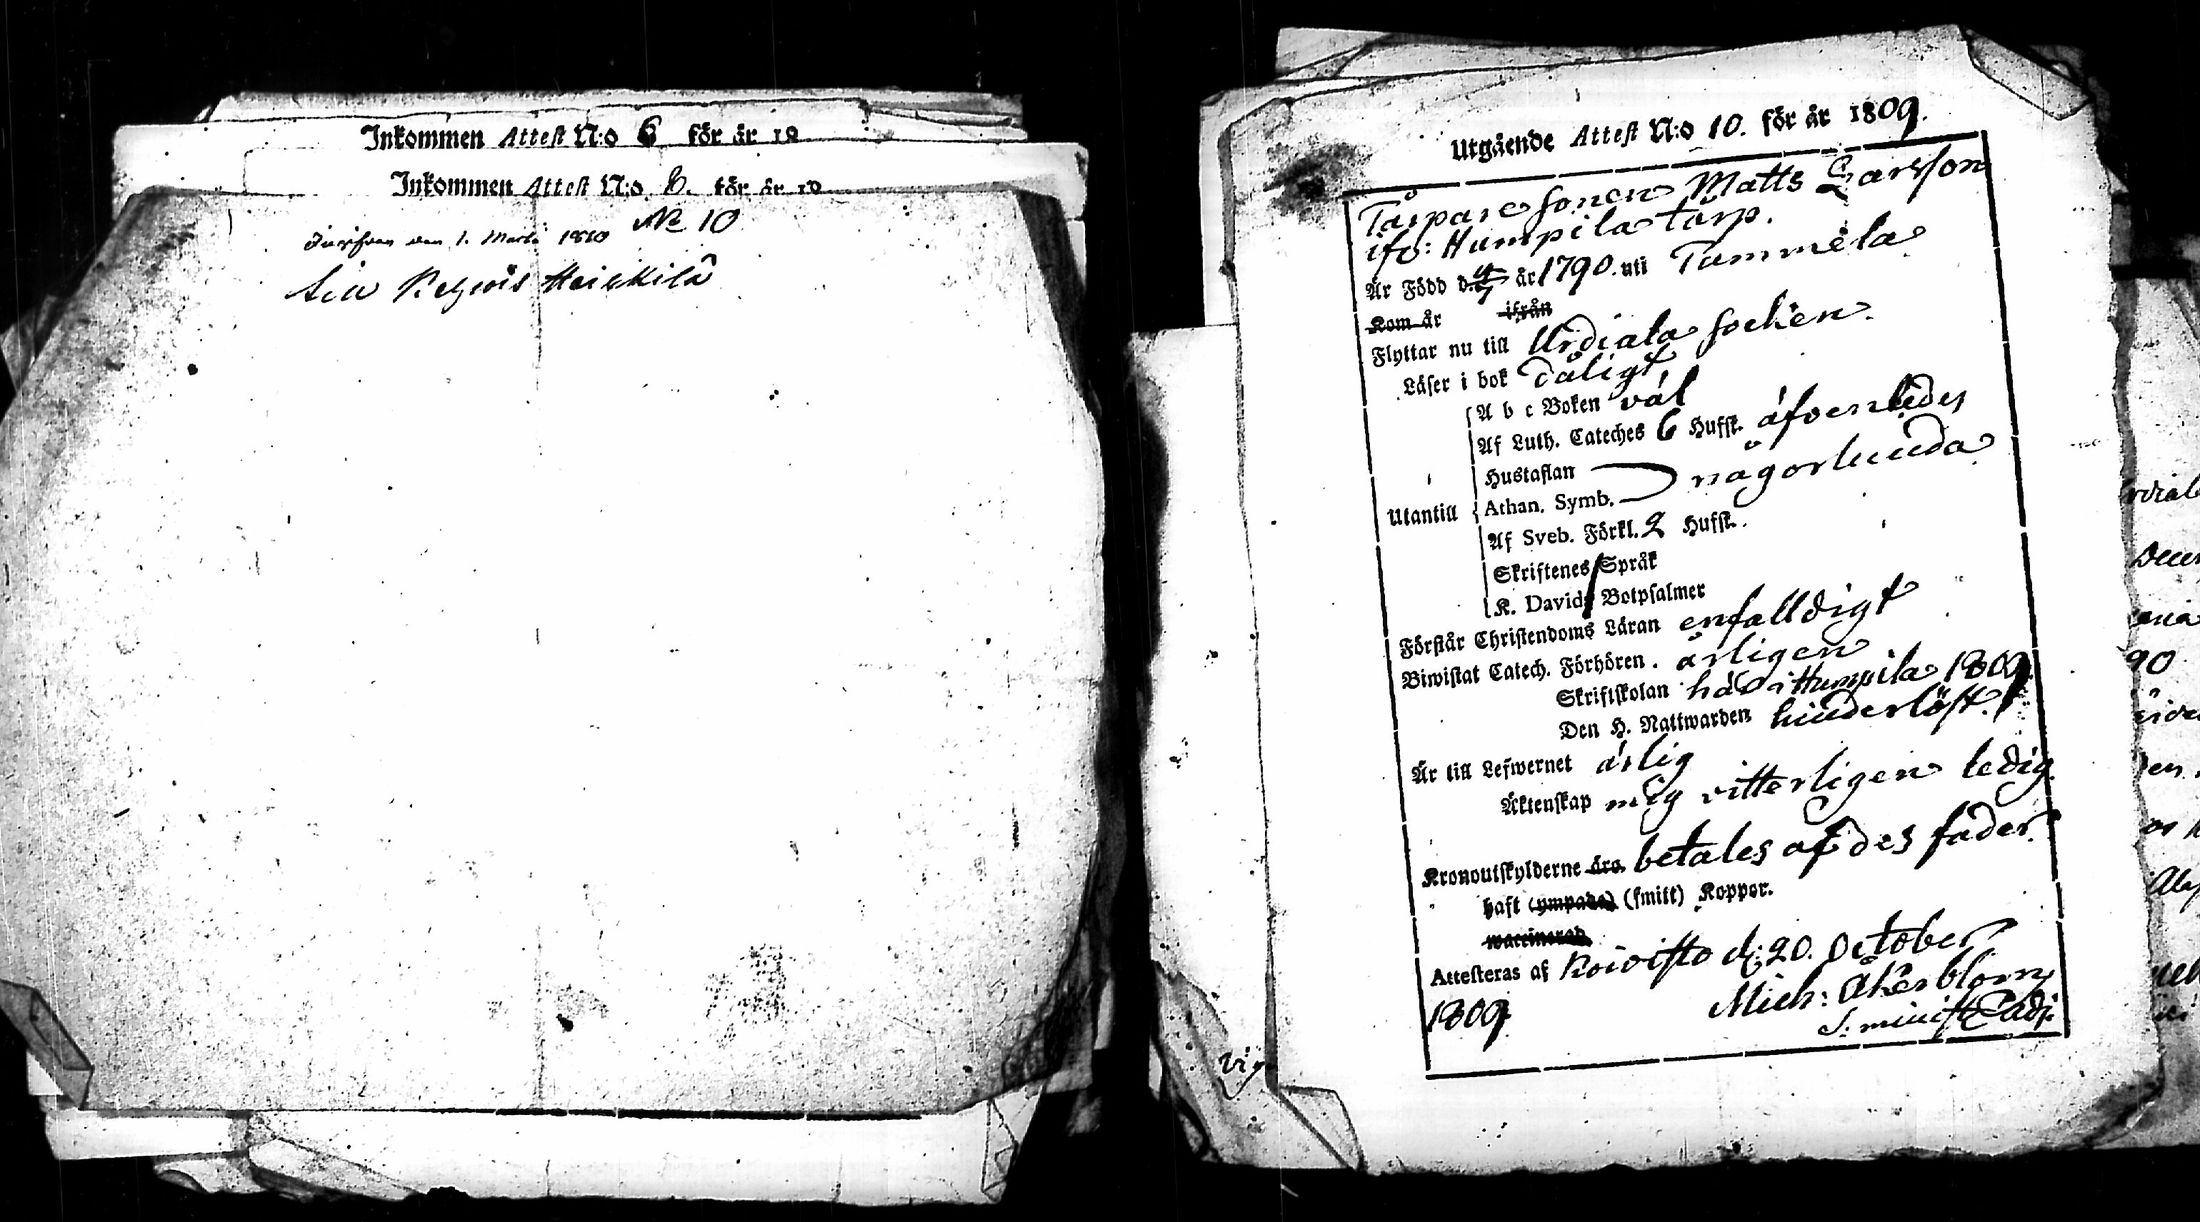 Inkommen Attest N:o 6 för år 18
Inkommen Attest N:o 8. för år 18
No 10
den 1. Martii 1810
Heikkilä
Utgående Attest N:o 10. för år 1809.
Tårparesonen Matts Larsson
ifr: Humpila tårp.
Är Född d. 4/7 år 1790. uti Tammela
Kom år ifrån
Flyttar nu till Urdiala socken.
Läser i bok dåligt
A b c Boken väl
Af Luth. Cateches 6 Hufst. äfvenledes
Hustaflan
någorlunda
Utantill
Athan. Symb.
Af Sveb. Förkl. 2 Hufst.
Skriftenes Språk
K. Davids Botpsalmer
Förstår Christendoms Läran enfalldigt
Biwistat Catech. Förhören. årligen
Skriftskolan här i Humpila 1809.
Den H. Nattwarden hinderlöst.
Är till Lefwernet ärlig
Äktenskap mig vitterligen ledig
Kronoutskylderne äro betales af des fader.
haft (ympade) (smitt) Koppor.
waccinerad
Attesteras af Koivisto d: 20. October
1809. Mich: Åkerblom
vig
90